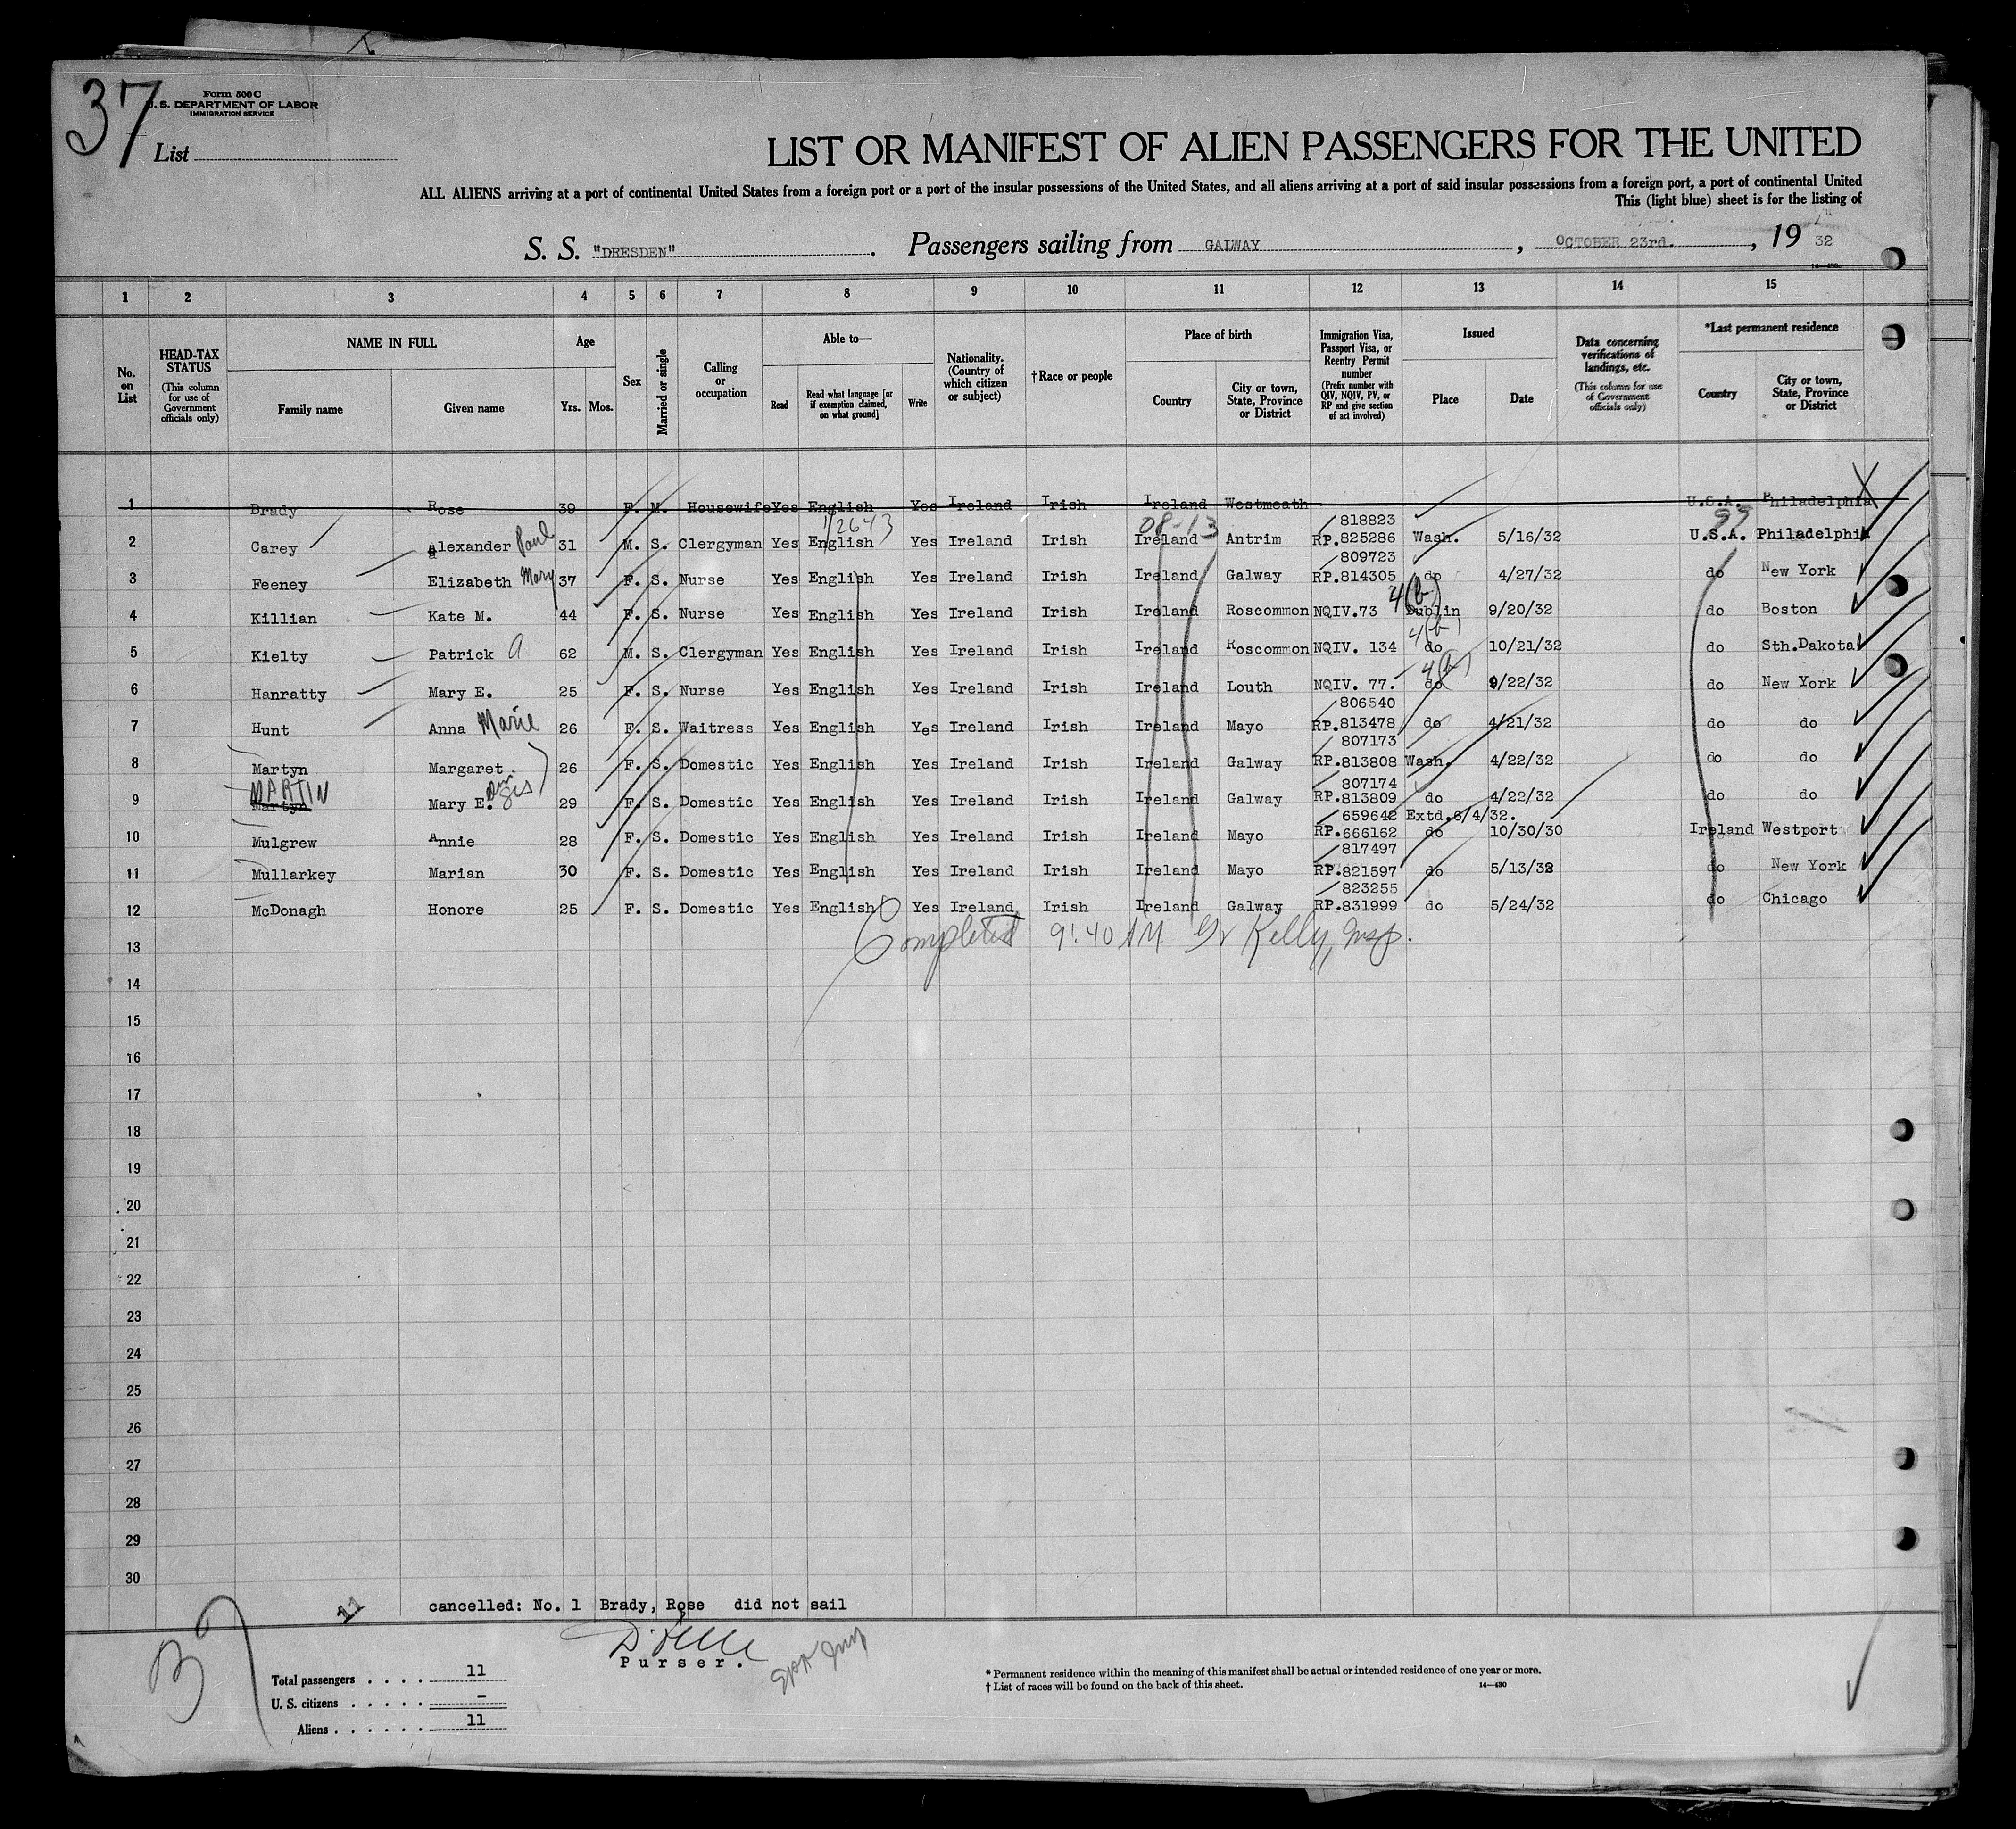 37
Form 500 C
U.S. DEPARTMENT OF LABOR
IMMIGRATION SERVICE
List
LIST OR MANIFEST OF ALIEN PASSENGERS FOR THE UNITED
ALL ALIENS arriving at a port of continental United States from a foreign port or a port of the insular possessions of the United States, and all aliens arriving at a port of said insular possessions from a foreign port, a port of continental United
This (light blue) sheet is for the listing of
S. S. "DRESDEN". Passengers sailing from GALWAY, OCTOBER 23rd., 19 32
1 2 3 4 5 6 7 8 9 10 11 12 13 14 15
No. on List
HEAD-TAX STATUS (This column for use of Government officials only)
NAME IN FULL
Family name Given name
Age
Yrs. Mos.
Sex
Married or single
Calling or occupation
Able to—
Read
Read what language [or if exemption claimed, on what ground]
Write
Nationality. (Country of which citizen or subject)
†Race or people
Place of birth
Country
City or town, State, Province or District
Immigration Visa, Passport Visa, or Reentry Permit number (Prefix number with QIV, NQIV, PV, or RP and give section of act involved)
Issued
Place Date
Data concerning verifications of landings, etc. (This column for use of Government officials only)
*Last permanent residence
Country
City or town, State, Province or District
1 Brady Rose 39 F. M. Housewife Yes English Yes Ireland Irish Ireland Westmeath U.S.A. Philadelphia
1/2643 08-13 818823 99
2 Carey Alexander Paul 31 M. S. Clergyman Yes English Yes Ireland Irish Ireland Antrim RP.825286 Wash. 5/16/32 U.S.A. Philadelphia
809723
3 Feeney Elizabeth Mary 37 F. S. Nurse Yes English Yes Ireland Irish Ireland Galway RP.814305 do 4/27/32 do New York
4(b)
4 Killian Kate M. 44 F. S. Nurse Yes English Yes Ireland Irish Ireland Roscommon NQIV.73 Dublin 9/20/32 do Boston
4(b)
5 Kielty Patrick A 62 M. S. Clergyman Yes English Yes Ireland Irish Ireland Roscommon NQIV. 134 do 10/21/32 do Sth.Dakota
4(b)
6 Hanratty Mary E. 25 F. S. Nurse Yes English Yes Ireland Irish Ireland Louth NQIV. 77. do 9/22/32 do New York
806540
7 Hunt Anna Marie 26 F. S. Waitress Yes English Yes Ireland Irish Ireland Mayo RP.813478 do 4/21/32 do do
807173
8 Martyn Margaret 26 F. S. Domestic Yes English Yes Ireland Irish Ireland Galway RP.813808 Wash. 4/22/32 do do
MARTIN sis 807174
9 Martyn Mary E. 29 F. S. Domestic Yes English Yes Ireland Irish Ireland Galway RP.813809 do 4/22/32 do do
659642 Extd.6/4/32.
10 Mulgrew Annie 28 F. S. Domestic Yes English Yes Ireland Irish Ireland Mayo RP.666162 do 10/30/30 Ireland Westport
817497
11 Mullarkey Marian 30 F. S. Domestic Yes English Yes Ireland Irish Ireland Mayo RP.821597 do 5/13/32 do New York
823255
12 McDonagh Honore 25 F. S. Domestic Yes English Yes Ireland Irish Ireland Galway RP.831999 do 5/24/32 do Chicago
Completed 9:40 AM Kelly, Insp.
13
14
15
16
17
18
19
20
21
22
23
24
25
26
27
28
29
30
11
cancelled: No. 1 Brady, Rose did not sail
Purser.
37
Total passengers . . . . 11
U. S. citizens . . . . . –
Aliens . . . . . . 11
* Permanent residence within the meaning of this manifest shall be actual or intended residence of one year or more.
† List of races will be found on the back of this sheet.
14—430